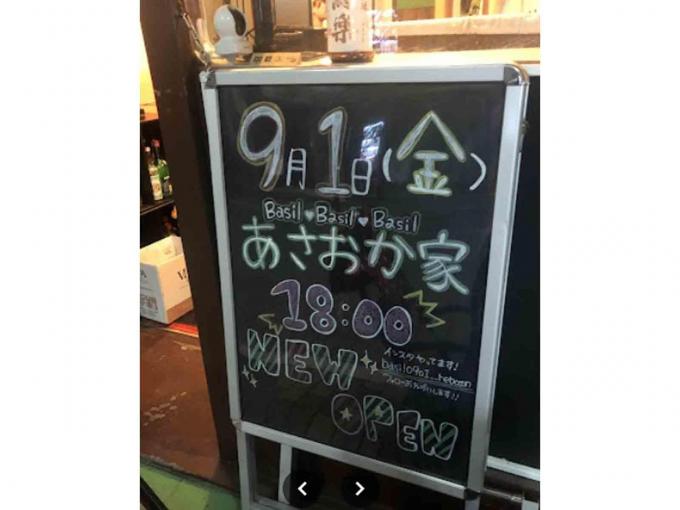 9月1日(金)
Basil♥Basil♥Basil
あさおか家
18:00
NEW
OPEN
インスタやってます!
basil0901_reborn
フォローお願いします!!